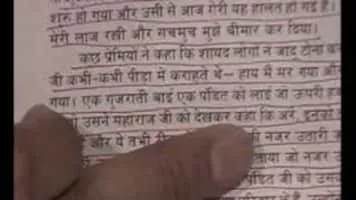 शुरू हो गया और उसी से आज मेरी यह हालत हो गई है।
मेरी लाज रखी और सचमुच मुझे बीमार कर दिया।
कुछ प्रेमियों ने कहा कि शायद लोगों ने जादू टोना
जी कभी-कभी पीड़ा में कराहते थे– हाय मैं मर गया
गया। एक गुजराती बाई एक पंडित को लाई जो ऊपरी
उसने महाराज जी को देखकर कहा कि अरे, इनको
और ये तभी नजर उतारी
जो नजर
पंडित जी को